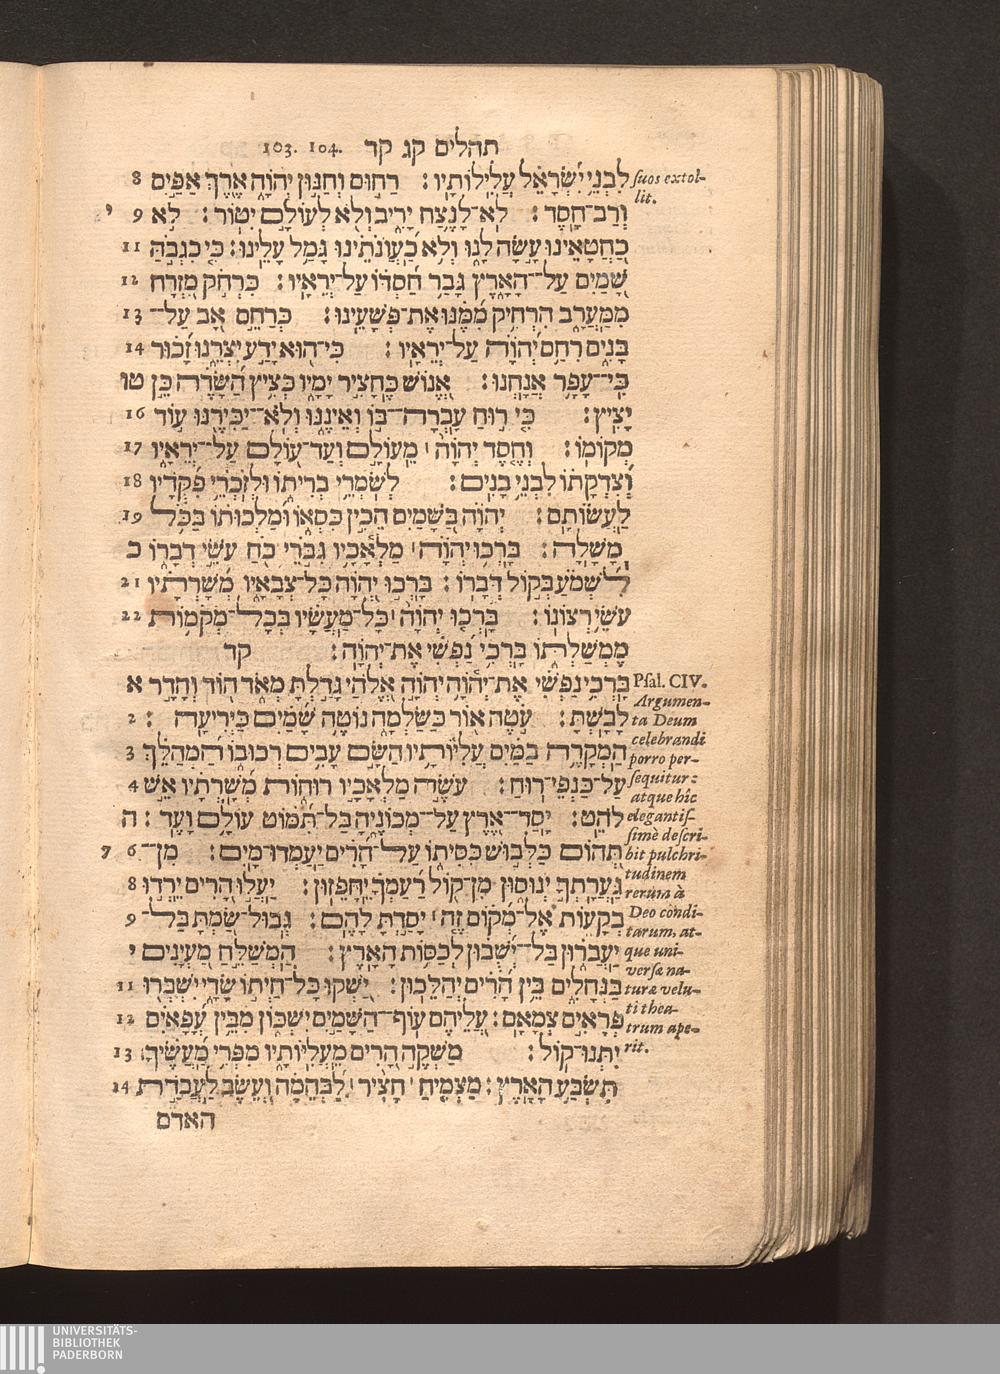 103. 104. תהלים קג קד
לִבְנֵי יִשְׂרָאֵל עֲלִילוֹתָיו׃ רַחוּם וְחַנּוּן יְהוָה אֶרֶךְ אַפַּיִם 8
וְרַב־חָסֶד׃ לֹא־לָנֶצַח יָרִיב וְלֹא לְעוֹלָם יִטּוֹר׃ לֹא 9 י
כַחֲטָאֵינוּ עָשָׂה לָנוּ וְלֹא כַעֲוֹנֹתֵינוּ גָּמַל עָלֵינוּ׃ כִּי כִגְבֹהַּ 11
שָׁמַיִם עַל־הָאָרֶץ גָּבַר חַסְדּוֹ עַל־יְרֵאָיו׃ כִּרְחֹק מִזְרָח 12
מִמַּעֲרָב הִרְחִיק מִמֶּנּוּ אֶת־פְּשָׁעֵינוּ׃ כְּרַחֵם אָב עַל־ 13
בָּנִים רִחַם יְהוָה עַל־יְרֵאָיו׃ כִּי־הוּא יָדַע יִצְרֵנוּ זָכוּר 14
כִּי־עָפָר אֲנָחְנוּ׃ אֱנוֹשׁ כֶּחָצִיר יָמָיו כְּצִיץ הַשָּׂדֶה כֵּן טו
יָצִיץ׃ כִּי רוּחַ עָבְרָה־בּוֹ וְאֵינֶנּוּ וְלֹא־יַכִּירֶנּוּ עוֹד 16
מְקוֹמוֹ׃ וְחֶסֶד יְהוָה׀ מֵעוֹלָם וְעַד־עוֹלָם עַל־יְרֵאָיו 17
וְצִדְקָתוֹ לִבְנֵי בָנִים׃ לְשֹׁמְרֵי בְרִיתוֹ וּלְזֹכְרֵי פִקֻּדָיו 18
לַעֲשׂוֹתָם׃ יְהוָה בַּשָּׁמַיִם הֵכִין כִּסְאוֹ וּמַלְכוּתוֹ בַּכֹּל 19
מָשָׁלָה׃ בָּרְכוּ יְהוָה׀ מַלְאָכָיו גִּבֹּרֵי כֹחַ עֹשֵׂי דְבָרוֹ כ
לִשְׁמֹעַ בְּקוֹל דְּבָרוֹ׃ בָּרְכוּ יְהוָה כָּל־צְבָאָיו מְשָׁרְתָיו 21
עֹשֵׂי רְצוֹנוֹ׃ בָּרְכוּ יְהוָה׀ כָּל־מַעֲשָׂיו בְּכָל־מְקֹמוֹת 22
מֶמְשַׁלְתּוֹ בָּרְכִי נַפְשִׁי אֶת־יְהוָה׃ קד
בָּרְכִי נַפְשִׁי אֶת־יְהוָה יְהוָה אֱלֹהַי גָּדַלְתָּ מְאֹד הוֹד וְהָדָר א
לָבָשְׁתָּ׃ עֹטֶה אוֹר כַּשַּׂלְמָה נוֹטֶה שָׁמַיִם כַּיְרִיעָה׃ 2
הַמְקָרֶה בַמַּיִם עֲלִיּוֹתָיו הַשָּׂם עָבִים רְכוּבוֹ הַמְהַלֵּךְ 3
עַל־כַּנְפֵי־רוּחַ׃ עֹשֶׂה מַלְאָכָיו רוּחוֹת מְשָׁרְתָיו אֵשׁ 4
לֹהֵט׃ יָסַד־אֶרֶץ עַל־מְכוֹנֶיהָ בַּל־תִּמּוֹט עוֹלָם וָעֶד׃ ה
תְּהוֹם כַּלְּבוּשׁ כִּסִּיתוֹ עַל־הָרִים יַעַמְדוּ מָיִם׃ מִן־ 6 7
גַּעֲרָתְךָ יְנוּסוּן מִן־קוֹל רַעַמְךָ יֵחָפֵזוּן׃ יַעֲלוּ הָרִים יֵרְדוּ 8
בְקָעוֹת אֶל־מְקוֹם זֶה׀ יָסַדְתָּ לָהֶם׃ גְּבוּל־שַׂמְתָּ בַּל־ 9
יַעֲבֹרוּן בַּל־יְשֻׁבוּן לְכַסּוֹת הָאָרֶץ׃ הַמְשַׁלֵּחַ מַעְיָנִים י
בַּנְּחָלִים בֵּין הָרִים יְהַלֵּכוּן׃ יַשְׁקוּ כָּל־חַיְתוֹ שָׂדָי יִשְׁבְּרוּ 11
פְרָאִים צְמָאָם׃ עֲלֵיהֶם עוֹף־הַשָּׁמַיִם יִשְׁכּוֹן מִבֵּין עֳפָאיִם 12
יִתְּנוּ־קוֹל׃ מַשְׁקֶה הָרִים מֵעֲלִיּוֹתָיו מִפְּרִי מַעֲשֶׂיךָ 13
תִּשְׂבַּע הָאָרֶץ׃ מַצְמִיחַ׀ חָצִיר׀ לַבְּהֵמָה וְעֵשֶׂב לַעֲבֹדַת 14
האדם
suos extol-
lit.
Psal. CIV.
Argumen-
ta Deum
celebrandi
porro per-
sequitur:
atque hîc
elegantis-
simè descri-
bit pulchri-
tudinem
rerum à
Deo condi-
tarum, at-
que uni-
versæ na-
turæ velu-
ti thea-
trum ape-
rit.
UNIVERSITÄTS-
BIBLIOTHEK
PADERBORN